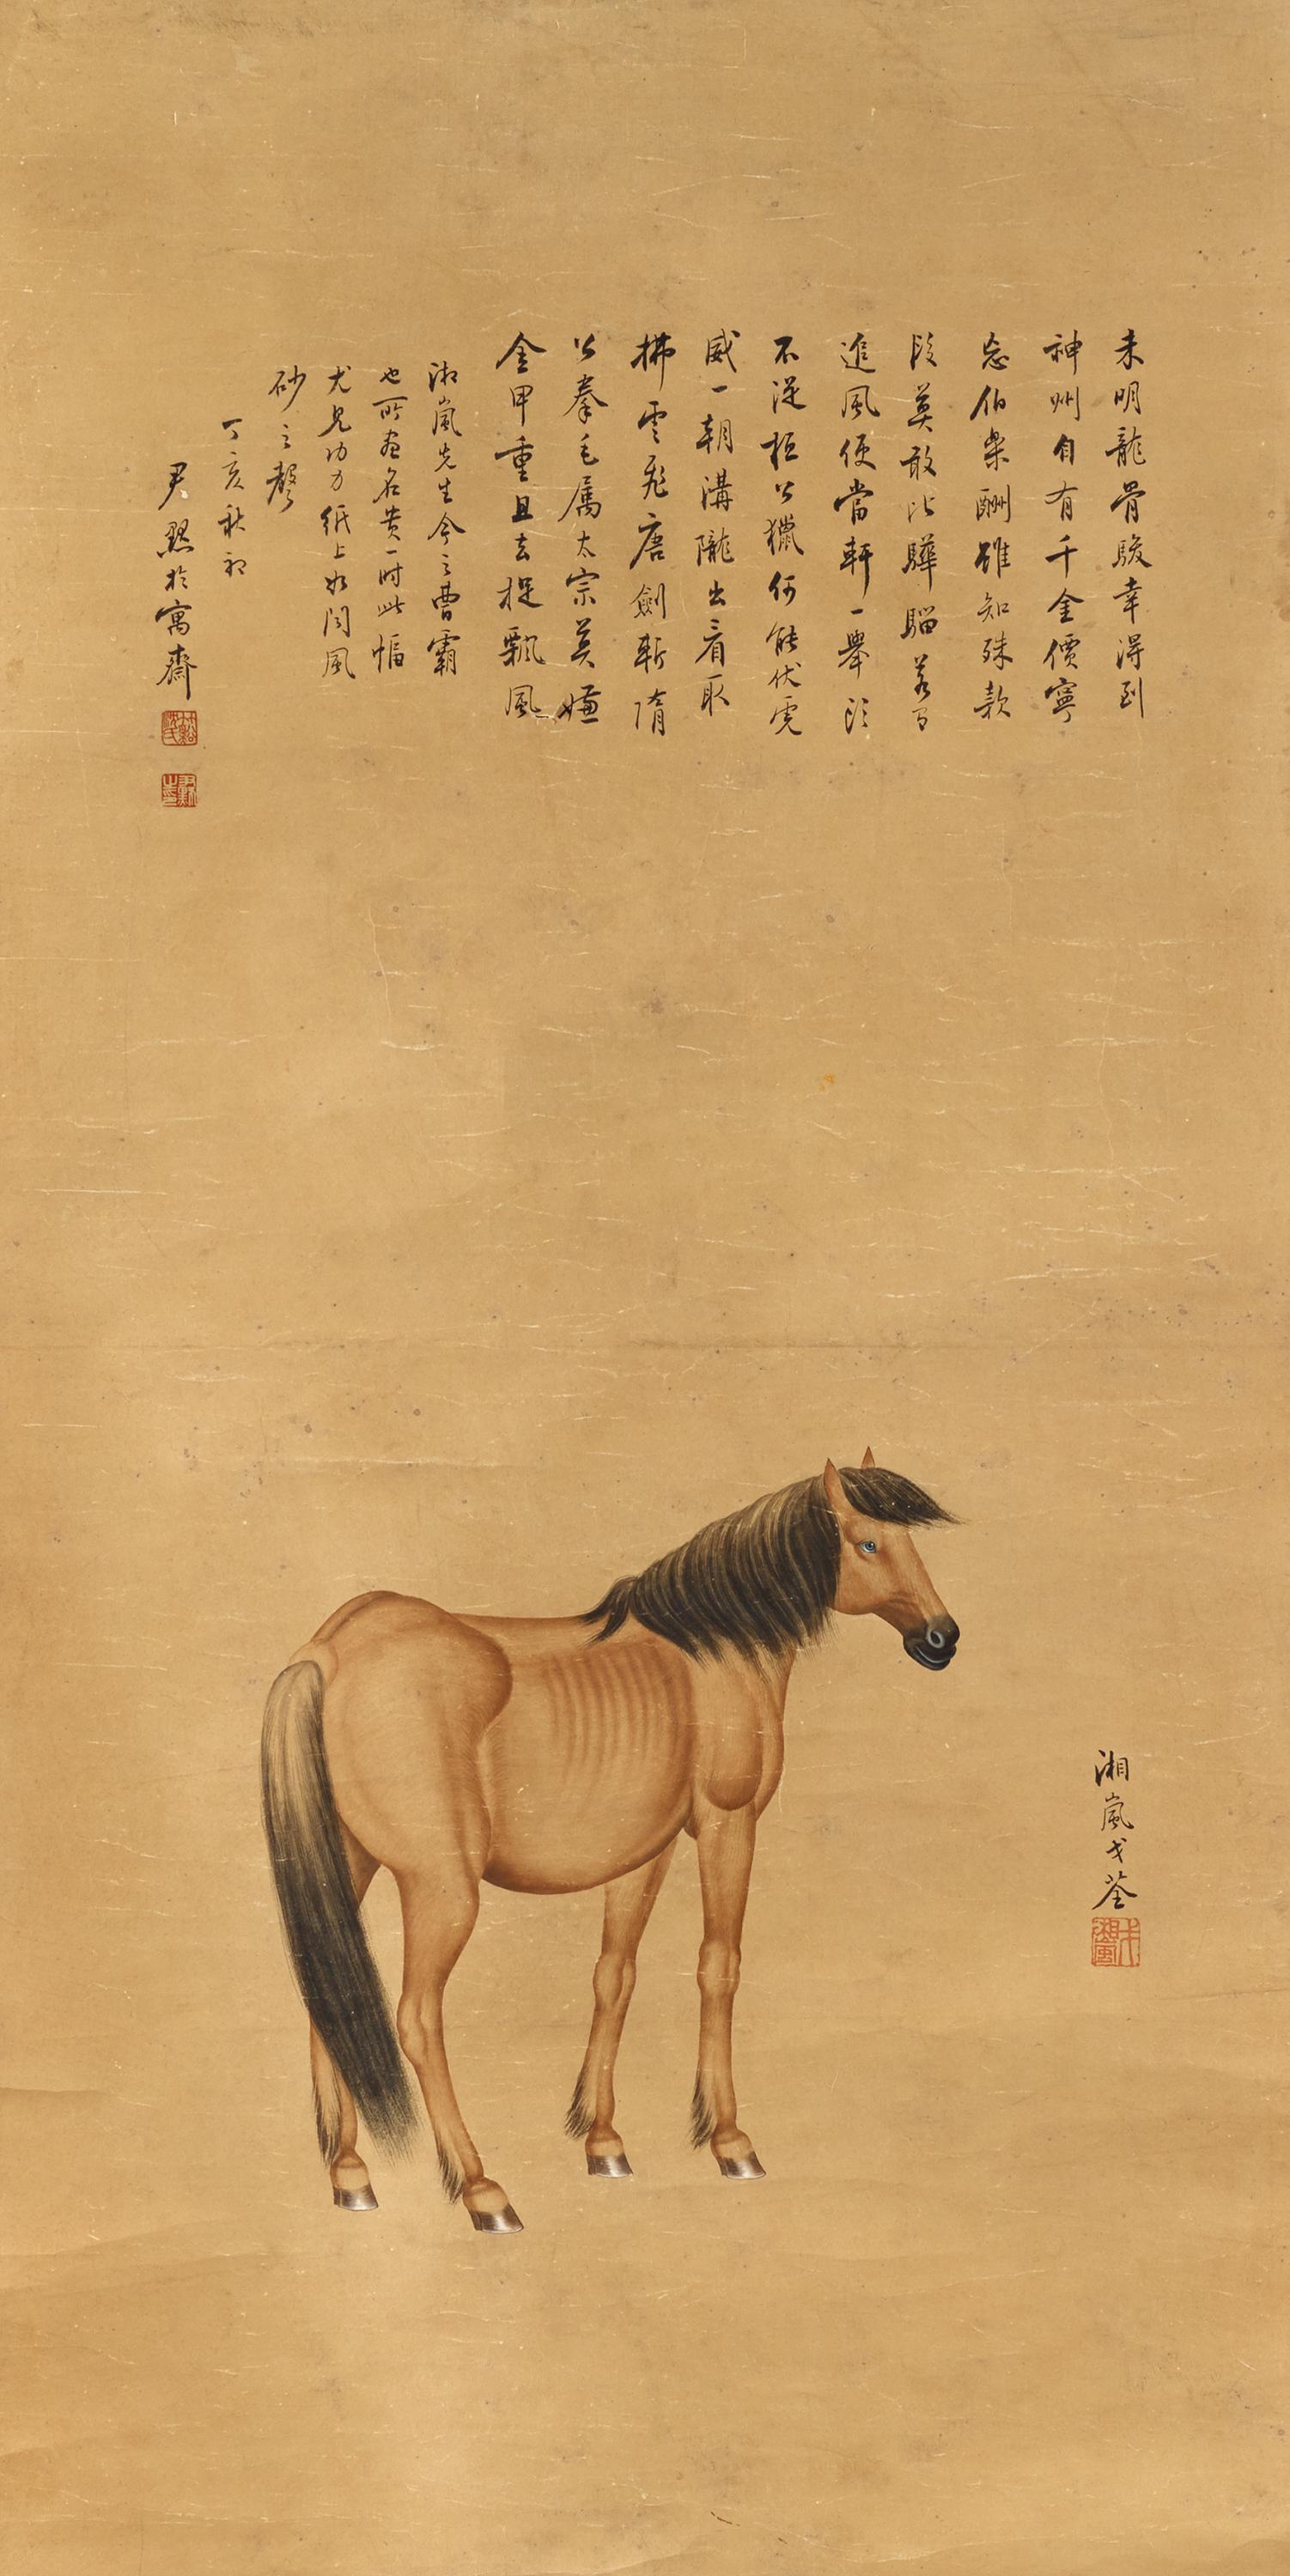 未明龍骨駿幸得到
神州自有千金價寧
忘伯樂酬雖知殊款
段莫敢比驊騮若日
進風便當軒一舉頭
不從桓公獵何能伏虎
威一朝溝隴出看取
拂雲飛唐劍斬隋
公拳毛屬太宗莫嫌
金甲重且去捉飄風
湘嵐先生今之曹霸
也所畫名貴一時此幅
尤見功力紙上如聞風
砂之聲
丁亥秋初
尹默於寓齋
湘嵐戈荃